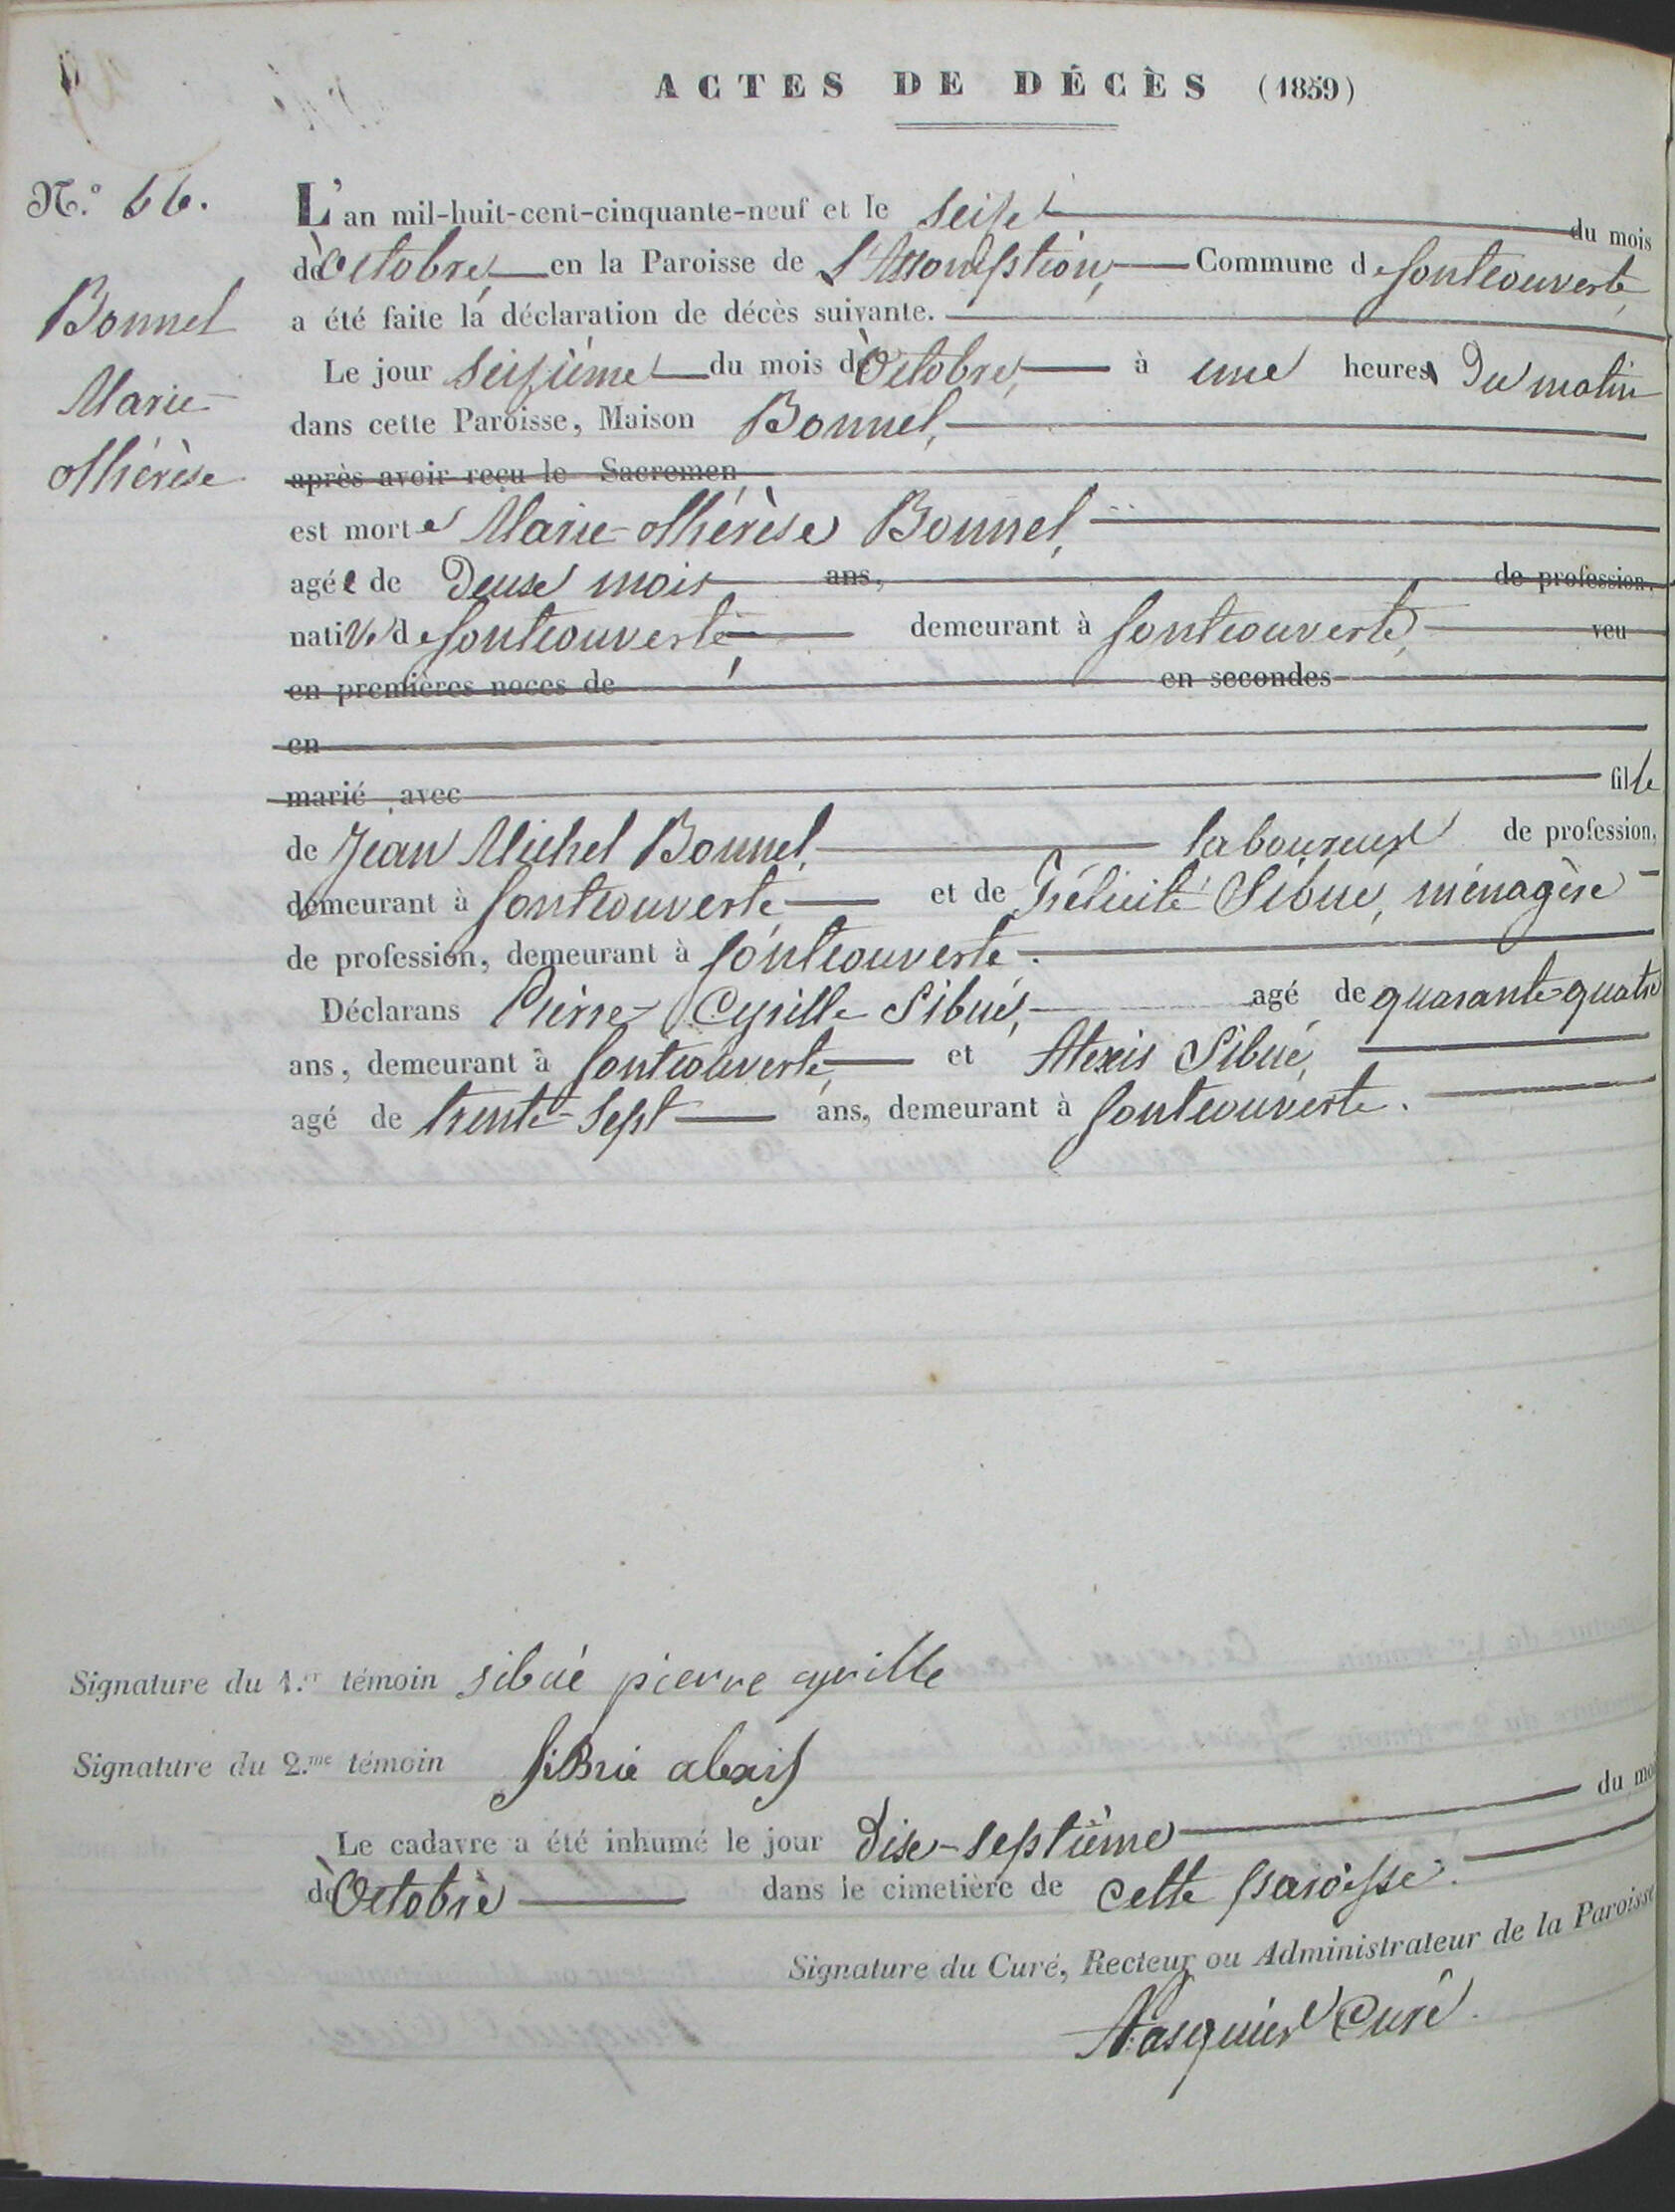 ACTES DE DÉCÈS (1859)
N.º 66.
L'an mil-huit-cent-cinquante-neuf et le seize du mois
d'Octobre, en la Paroisse de L'Assomption, Commune de fontcouverte,
a été faite la déclaration de décès suivante.
Bonnel
Marie
Thérèse
Le jour seizième du mois d'Octobre, à une heures du matin
dans cette Paroisse, Maison Bonnel,
après avoir reçu le Sacremen
est morte Marie-Thérèse Bonnel,
agée de Deux mois ans, de profession,
native de fontcouverte, demeurant à fontcouverte, veu
en premières noces de en secondes
en
marié avec fille
de Jean Michel Bonnel, laboureur de profession,
demeurant à fontcouverte, et de Félicité Sibué, ménagère
de profession, demeurant à fontcouverte.
Déclarans Pierre Cyrille Sibué, agé de quarante-quatre
ans, demeurant à fontcouverte, et Alexis Sibué,
agé de trente-sept ans, demeurant à fontcouverte.
Signature du 1.er témoin sibué pierre cyrille
Signature du 2.me témoin siBué alexis
Le cadavre a été inhumé le jour dix-septième du moi
d'Octobre dans le cimetière de cette paroisse.
Signature du Curé, Recteur ou Administrateur de la Paroisse
Curé